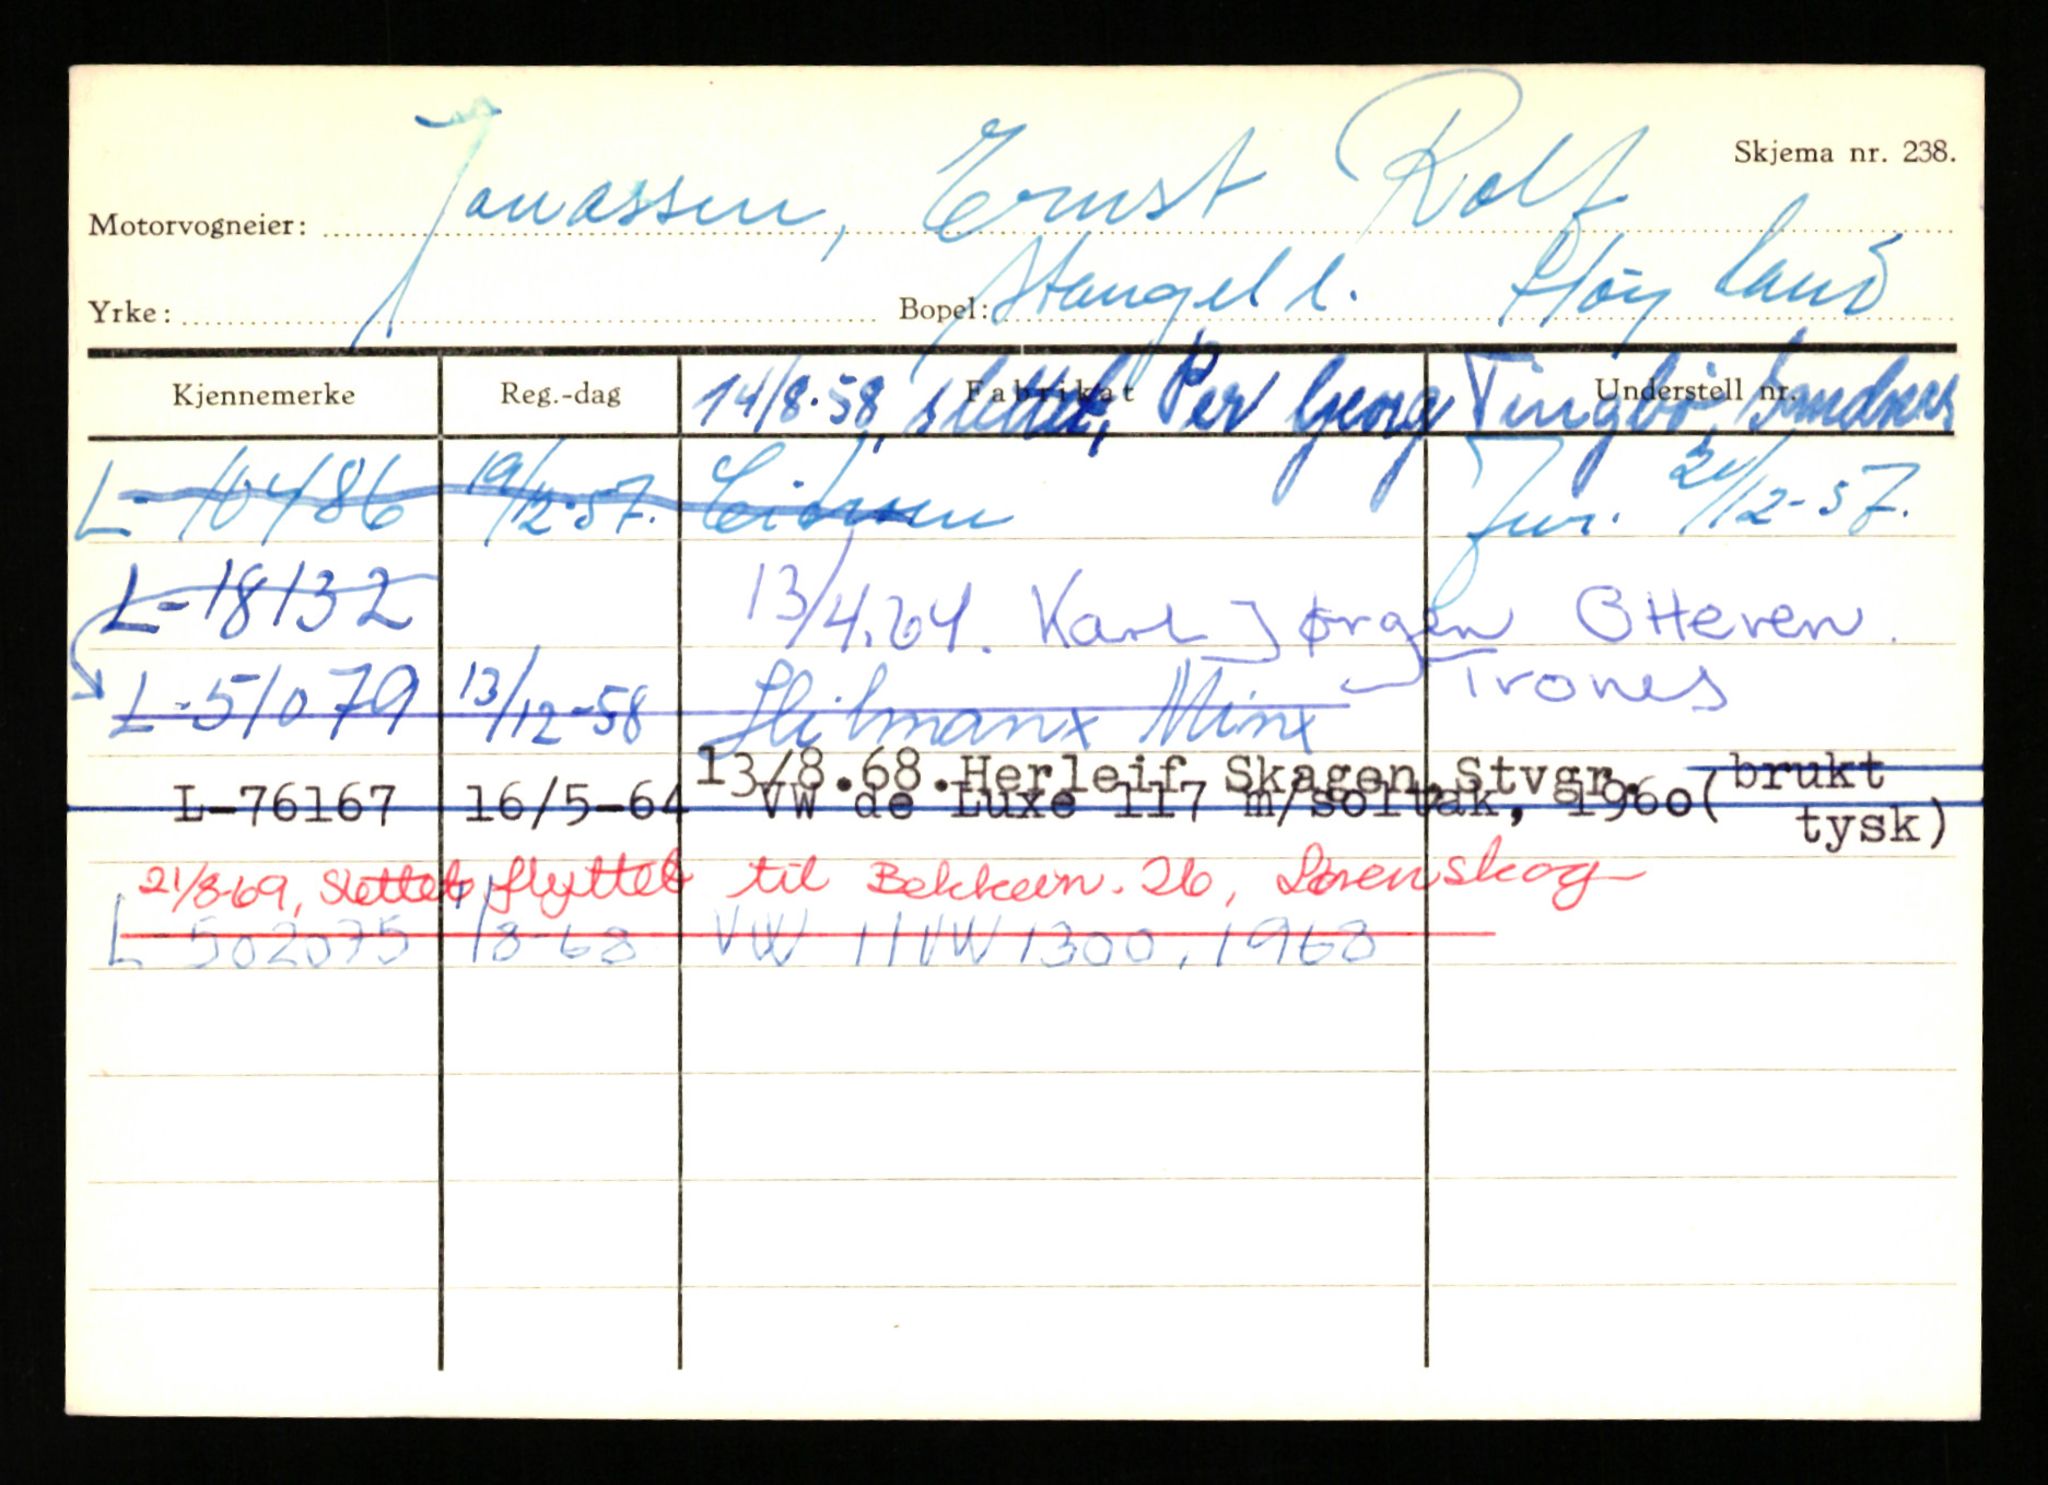 Skjema nr. 238.
Motorvogneier: Jonassen, Ernst Rolf
Yrke: Bopel: Stangel l. Høyland
Kjennemerke Reg.-dag Fabrikat Understell nr.
14/8-58, slettet, Per Georg Tingbø, Sandnes
L-10486 19/12-57. Citroen Jnr. 21/12-57.
L-18132 13/4.64. Karl Jørgen Otteren.
Trones
L-51079 13/12-58 Hilmanx Minx
13/8.68.Herleif Skagen,Stvgr.
L-76167 16/5-64 VW de Luxe 117 m/soltak, 1960(brukt
tysk)
21/8-69, Slettet flyttet til Bekkevn. 26, Lørenskog
L-502075 1/8-68 VW 11VW1300, 1968